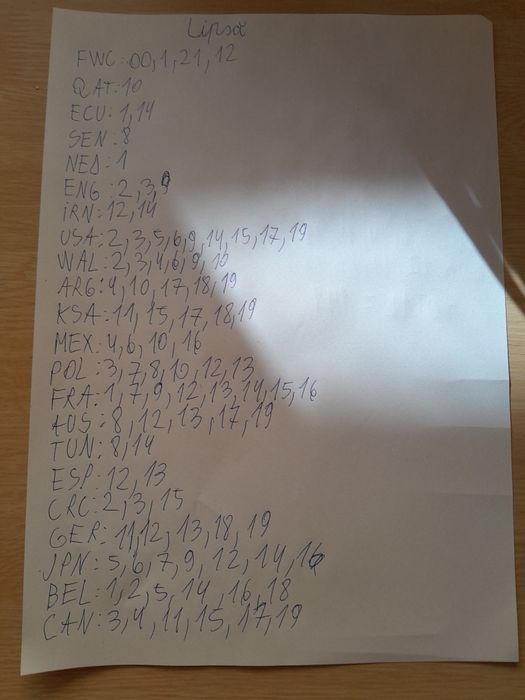 Lipsa
FWC: 00, 1, 21, 12
QAT: 10
ECU: 1, 14
SEN: 8
NED: 1
ENG: 2, 3, 9
IRN: 12, 14
USA: 2, 3, 5, 6, 9, 14, 15, 17, 19
WAL: 2, 3, 4, 6, 9, 10
ARG: 4, 10, 17, 18, 19
KSA: 11, 15, 17, 18, 19
MEX: 4, 6, 10, 16
POL: 3, 7, 8, 10, 12, 13
FRA: 1, 7, 9, 12, 13, 14, 15, 16
AUS: 8, 12, 13, 17, 19
TUN: 8, 14
ESP: 12, 13
CRC: 2, 3, 15
GER: 11, 12, 13, 18, 19
JPN: 5, 6, 7, 9, 12, 14, 16
BEL: 1, 2, 5, 14, 16, 18
CAN: 3, 4, 11, 15, 17, 19